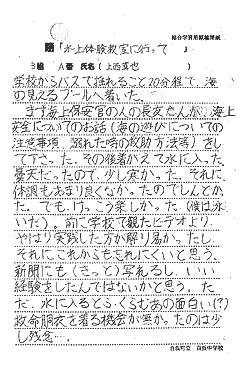 総合学習用原稿用紙
題「水上体験教室に行って」
3 組 A 番 氏名(上西真也)
学校からバスで揺れること20分程で、海
の見えるプールへ着いた。
まず海上保安官の人の長友さんが、海上
安全についてのお話(海の遊びについての
注意事項、溺れた時の救助方法等)をし
て下さった。その後着がえて水に入った。
曇天だったので、少し寒かった。それに、
体調もあまり良くなかったのでしんどかっ
た。でも、けっこう楽しかった。(後は泳
いた)。前に学校で観たビデオより、
やはり実践した方が解り易かったし、
それにこれからも忘れにくいと思う。
新聞にも(きっと)写れるし、いい
経験をしたんではないかと思う。た
だ、水に入るとふくらむあの面白い(?)
救命胴衣を着る機会が無かったのは少
し残念…。
白浜町立 白浜中学校